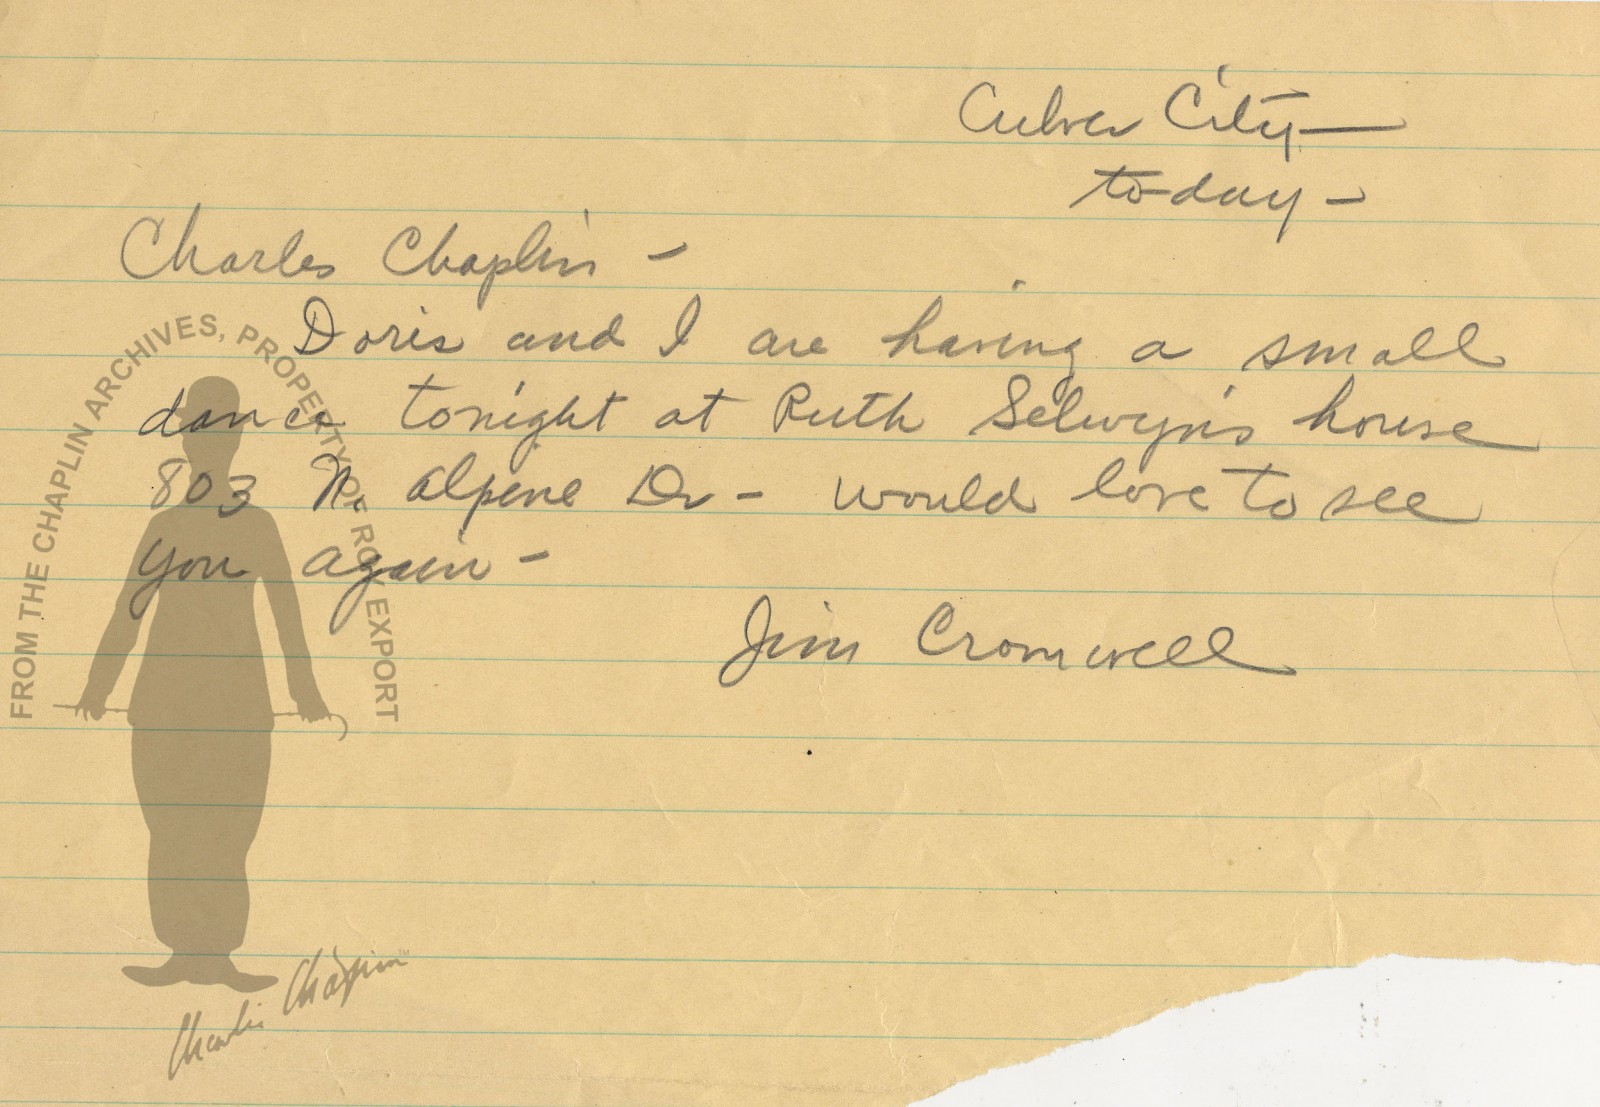 Culver City—
to-day—
Charles Chaplin—
Doris and I are having a small
dance tonight at Ruth Selwyn's house
803 N. Alpine Dr— would love to see
you again—
Jim Cromwell
FROM THE CHAPLIN ARCHIVES, PROPERTY OF ROY EXPORT
Charlie Chaplin